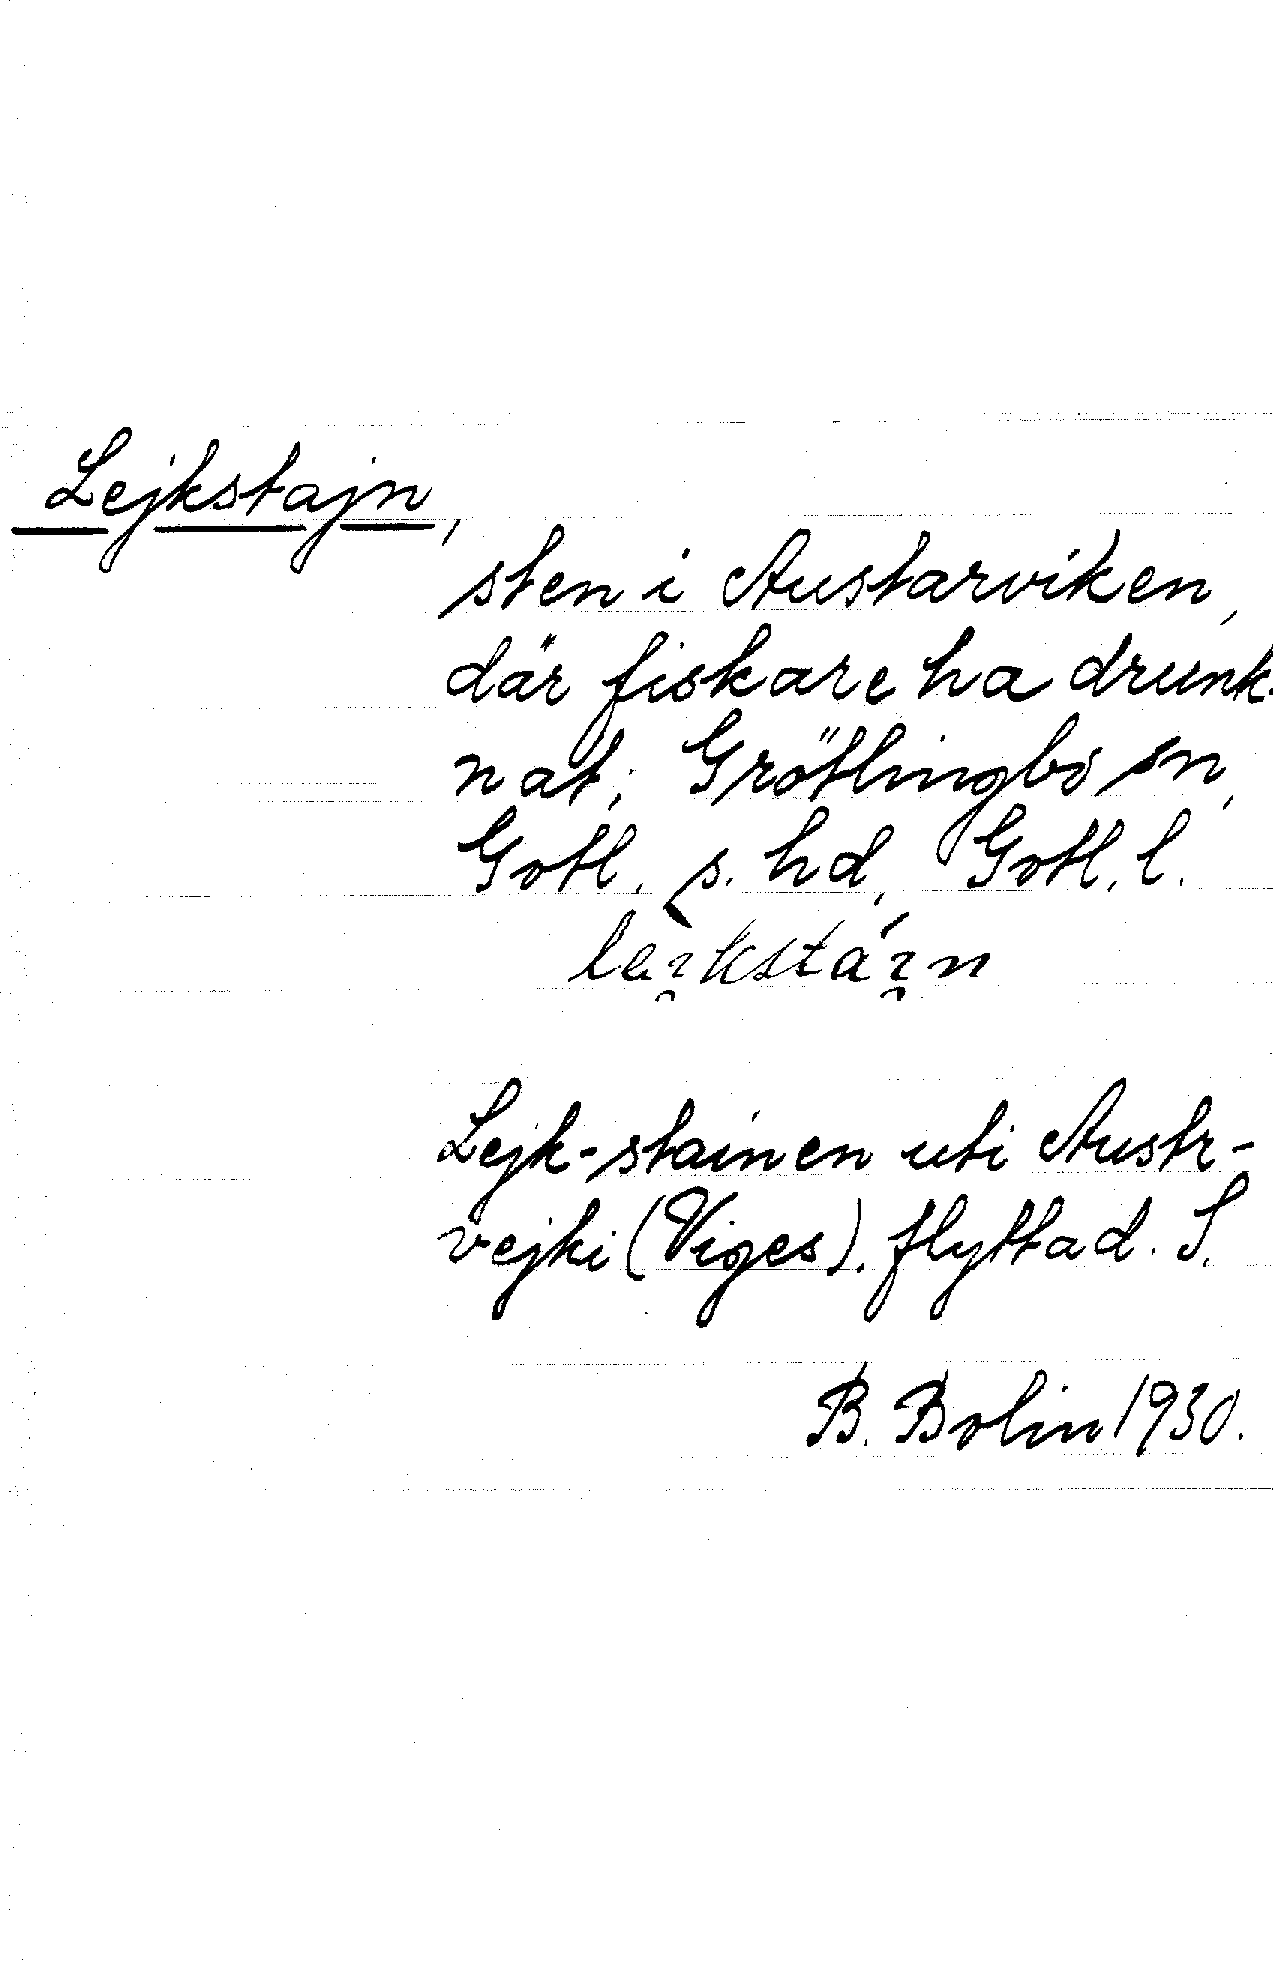 Lejkstajn,
sten i Austarviken,
där fiskare ha drunk-
nat; Grötlingbo sn,
Gotl. s. hd, Gotl. l.
Lejk-stainen uti Austr-
vejki (Viges). flyttad. S.
B. Bolin 1930.